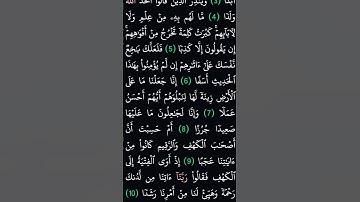 أَبَدًا (3) وَيُنذِرَ الَّذِينَ قَالُوا اتَّخَذَ اللَّهُ
وَلَدًا (4) مَّا لَهُم بِهِۦ مِنْ عِلْمٍ وَلَا
لِآبَائِهِمْ ۚ كَبُرَتْ كَلِمَةً تَخْرُجُ مِنْ أَفْوَاهِهِمْ ۚ
إِن يَقُولُونَ إِلَّا كَذِبًا (5) فَلَعَلَّكَ بَاخِعٌ
نَّفْسَكَ عَلَىٰ ءَاثَارِهِمْ إِن لَّمْ يُؤْمِنُوا بِهَٰذَا
الْحَدِيثِ أَسَفًا (6) إِنَّا جَعَلْنَا مَا عَلَى
الْأَرْضِ زِينَةً لَّهَا لِنَبْلُوَهُمْ أَيُّهُمْ أَحْسَنُ
عَمَلًا (7) وَإِنَّا لَجَاعِلُونَ مَا عَلَيْهَا
صَعِيدًا جُرُزًا (8) أَمْ حَسِبْتَ أَنَّ
أَصْحَابَ الْكَهْفِ وَالرَّقِيمِ كَانُوا مِنْ
ءَايَاتِنَا عَجَبًا (9) إِذْ أَوَى الْفِتْيَةُ إِلَى
الْكَهْفِ فَقَالُوا رَبَّنَا ءَاتِنَا مِن لَّدُنكَ
رَحْمَةً وَهَيِّئْ لَنَا مِنْ أَمْرِنَا رَشَدًا (10)